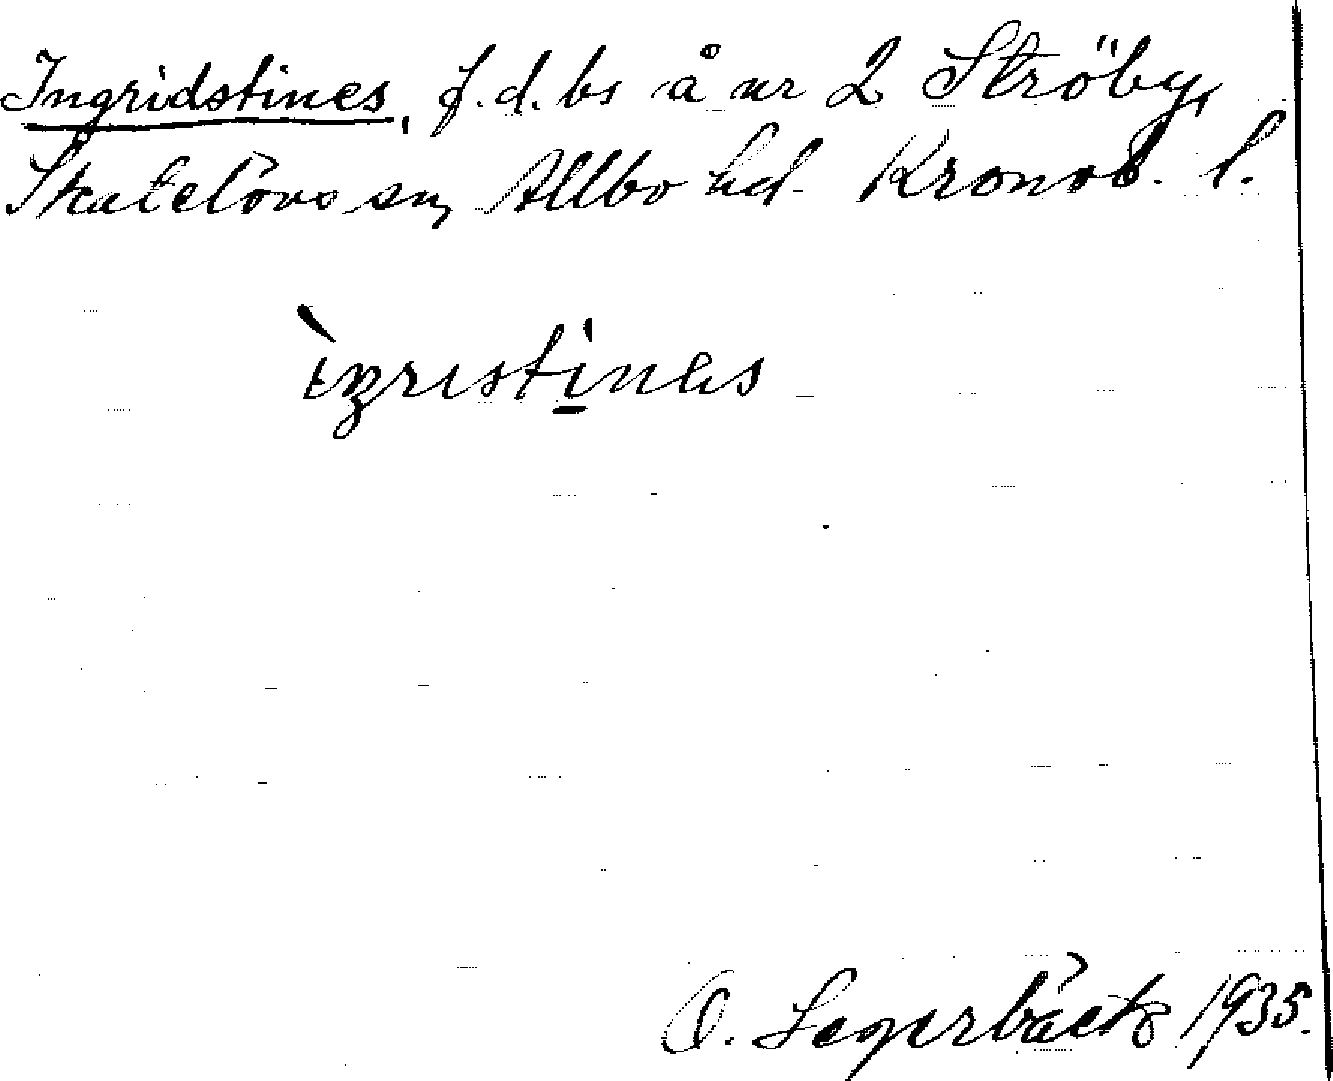 Ingridstines, f.d. bs å nr 2 Ströby,
Skatelövs sn, Allbo hd. Kronob. l.
O. Segerbäck 1935.